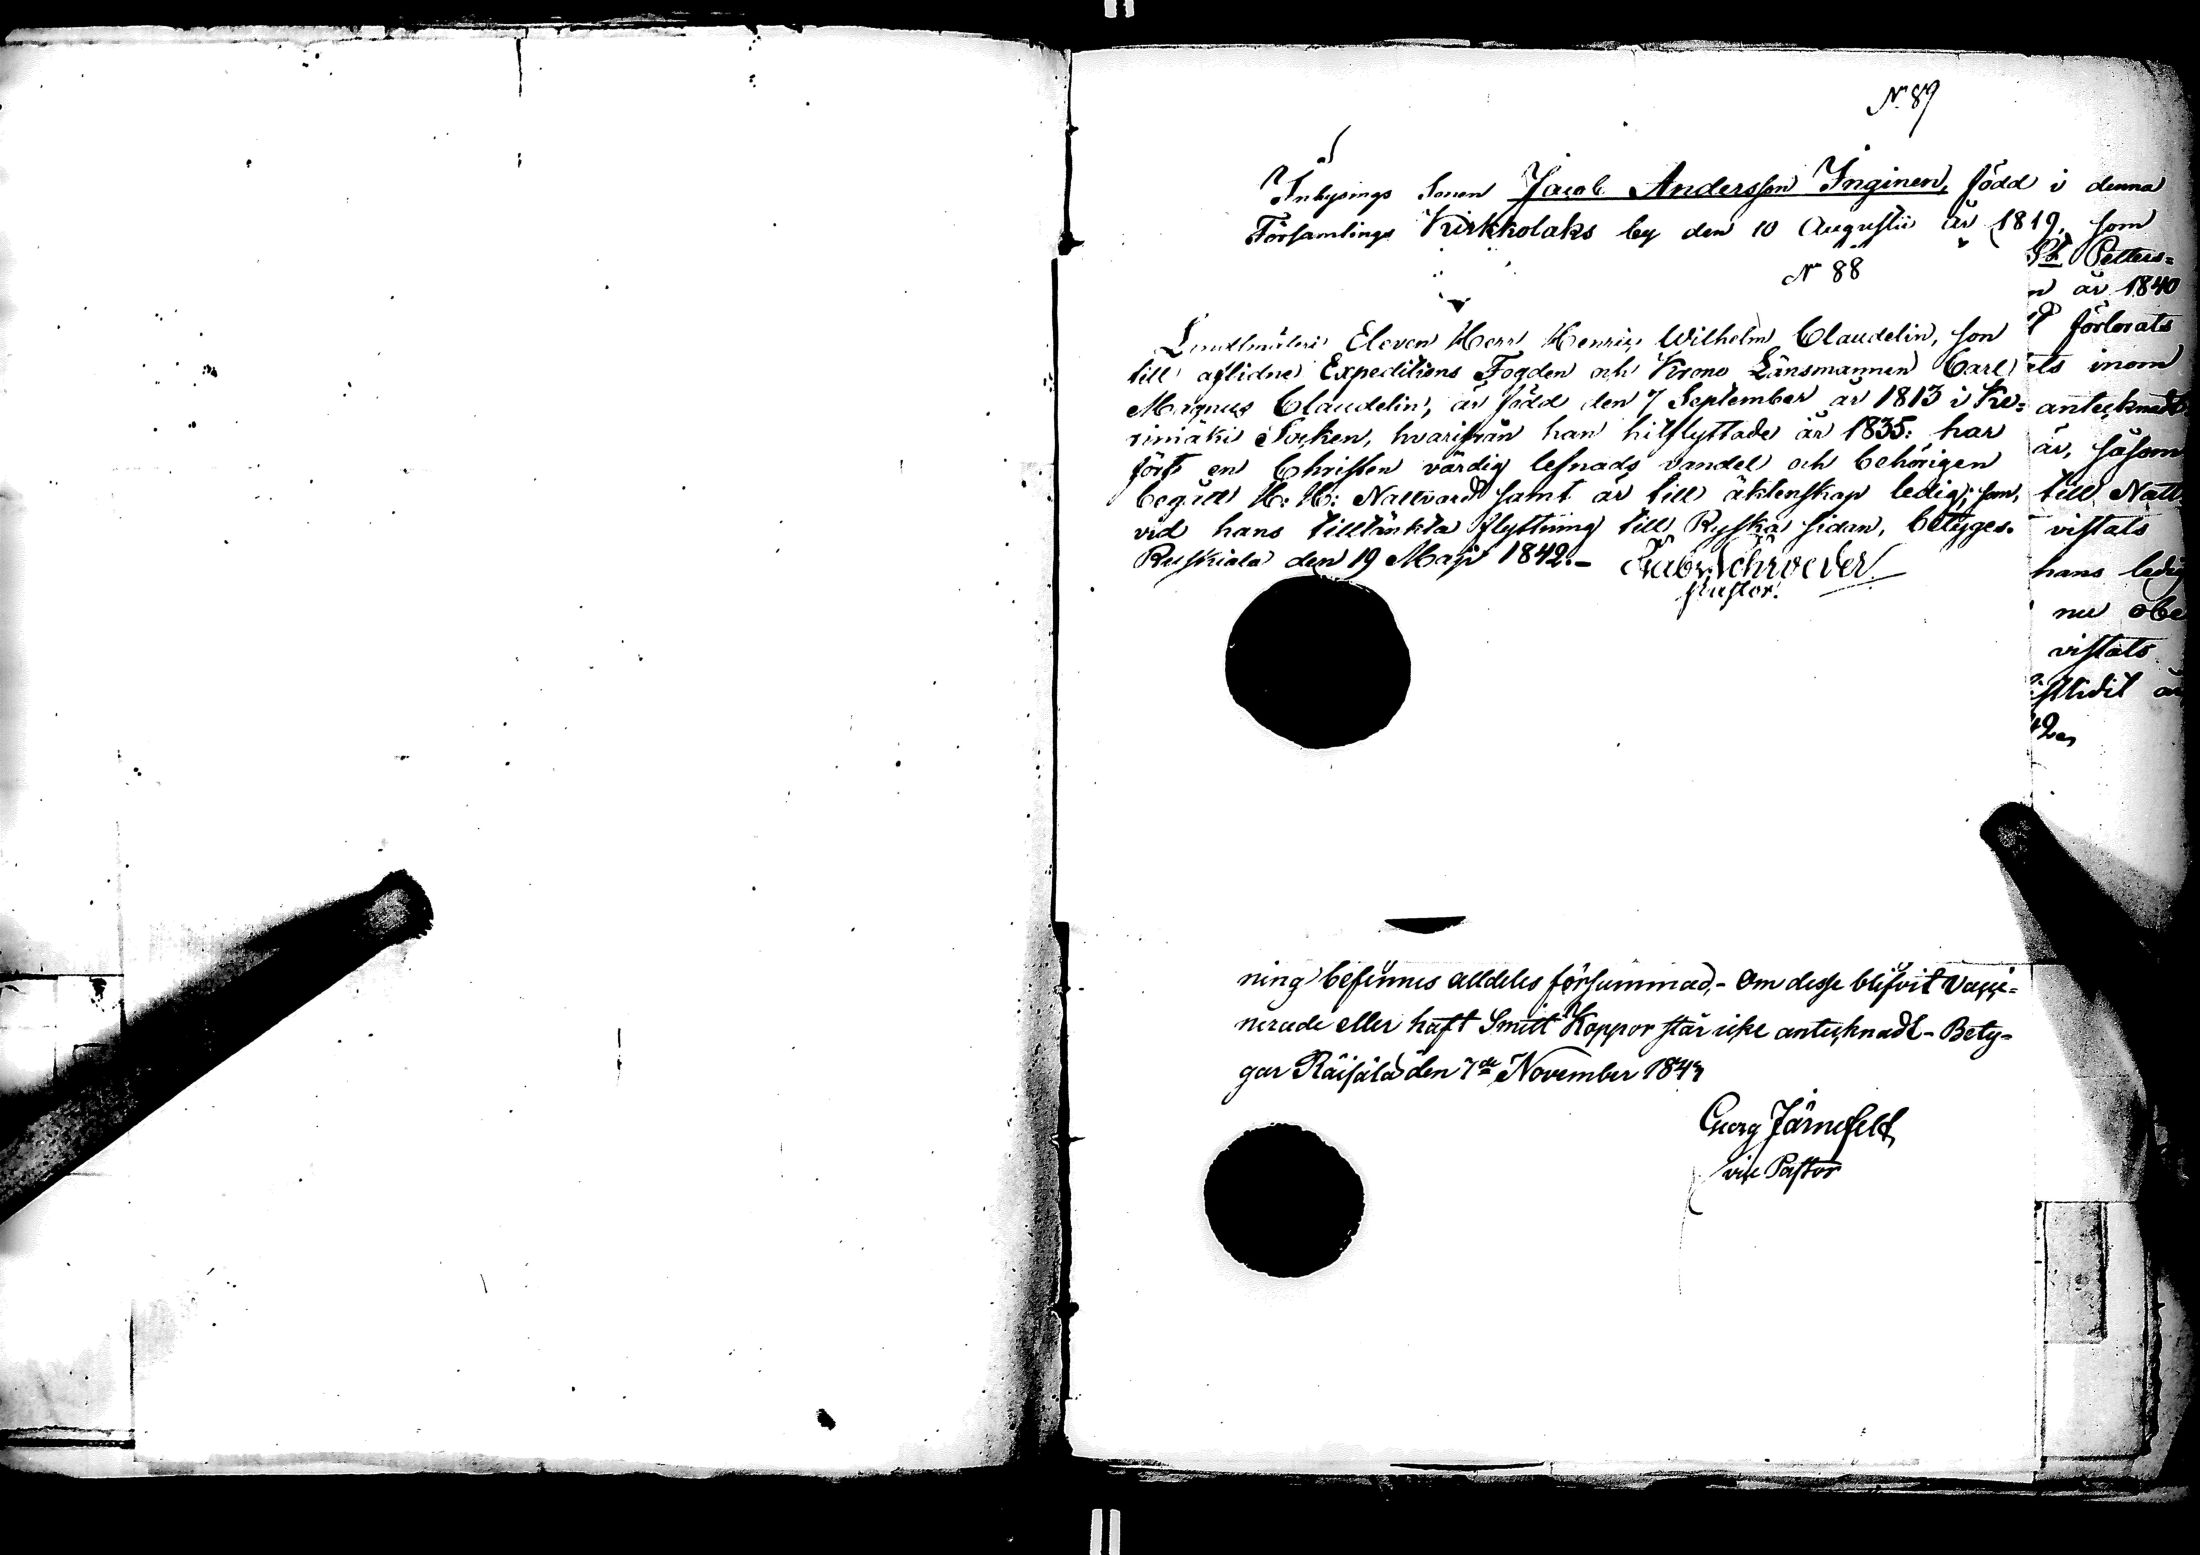 N. 89
Inhysings Sonen Jacob Andersson Inginen, född i denna
Församlings Kirkkolaks by den 10 Augustii år 1819, som
St Petters=
år 1840
N 88
Landtmäteri Eleven Herr Henric Wilhelm Claudelin, son
förlorats
till aflidne Expeditions Fogden och Krono Länsmannen Carl
inom
Magnus Claudelin, är född den 7 September år 1813 i Ke=
antecknadt
rimäki Socken, hvarifrån han hitflyttade år 1835: har
år, såsom
fört en Christen värdig lefnads vandel och behörigen
till Natt
begått H: H: Nattvard samt är till äktenskap ledig; som,
vistats
vid hans tilltänkta flyttning till Ryska sidan, betyges.
hans ledig
Ruskiala den 19 Maji 1842.– Gabr. Schroeder.
Pastor.
nu obe
vistats
42.
ning befinnes alldeles försummad,- Om desse blifvit Vacci=
nerade eller haft Smitt Koppor står icke antecknadt – Bety=
gar Räisälä den 7de November 1844
Georg Järnefelt
vice Pastor